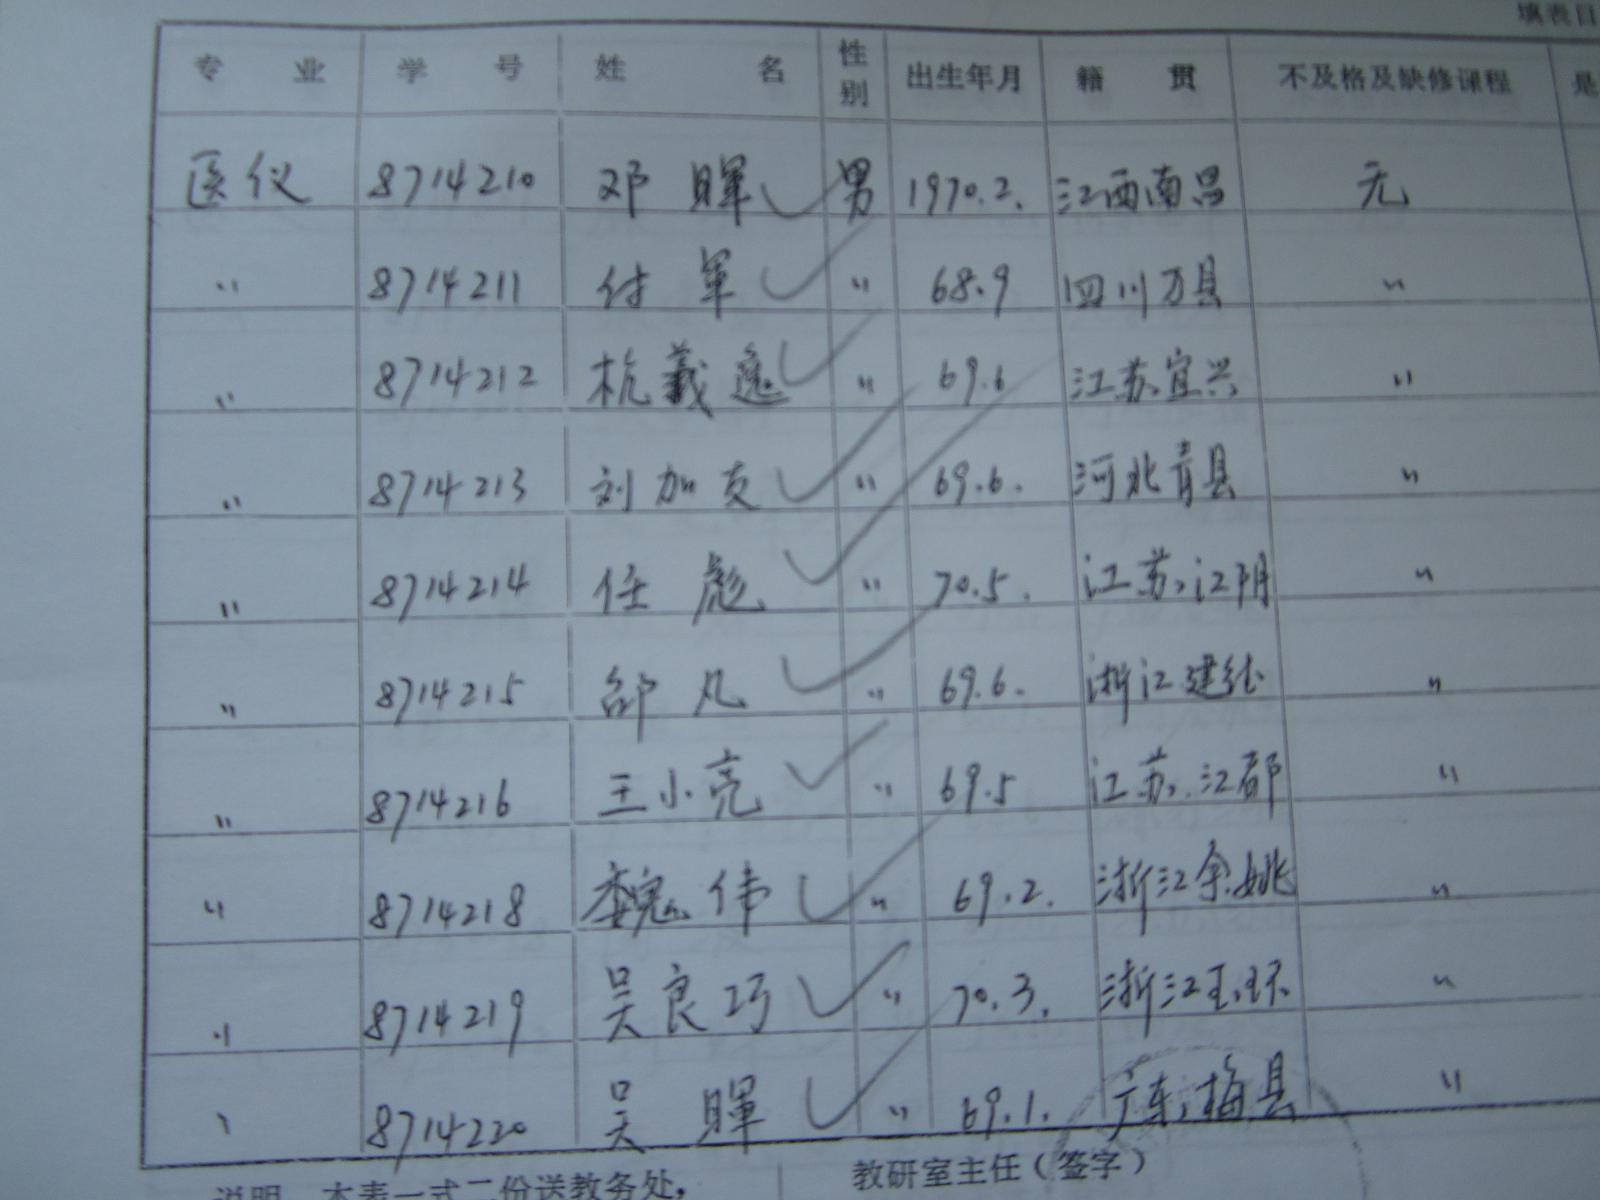 填表日
专 业 学 号 姓 名 性别 出生年月 籍 贯 不及格及缺修课程 是
医仪 8714210 邓 暉 男 1970.2. 江西南昌 无
〃 8714211 付 军 〃 68.9 四川万县 〃
〃 8714212 杭義逸 〃 69.6 江苏宜兴 〃
〃 8714213 刘加友 〃 69.6. 河北青县 〃
〃 8714214 任 彪 〃 70.5. 江苏江阴 〃
〃 8714215 邵 凡 〃 69.6. 浙江建德 〃
〃 8714216 王小亮 〃 69.5 江苏江都 〃
〃 8714218 魏 伟 〃 69.2. 浙江余姚 〃
〃 8714219 吴良巧 〃 70.3. 浙江玉环 〃
〃 8714220 吴 暉 〃 69.1. 广东梅县 〃
说明 本表一式二份送教务处, 教研室主任(签字)